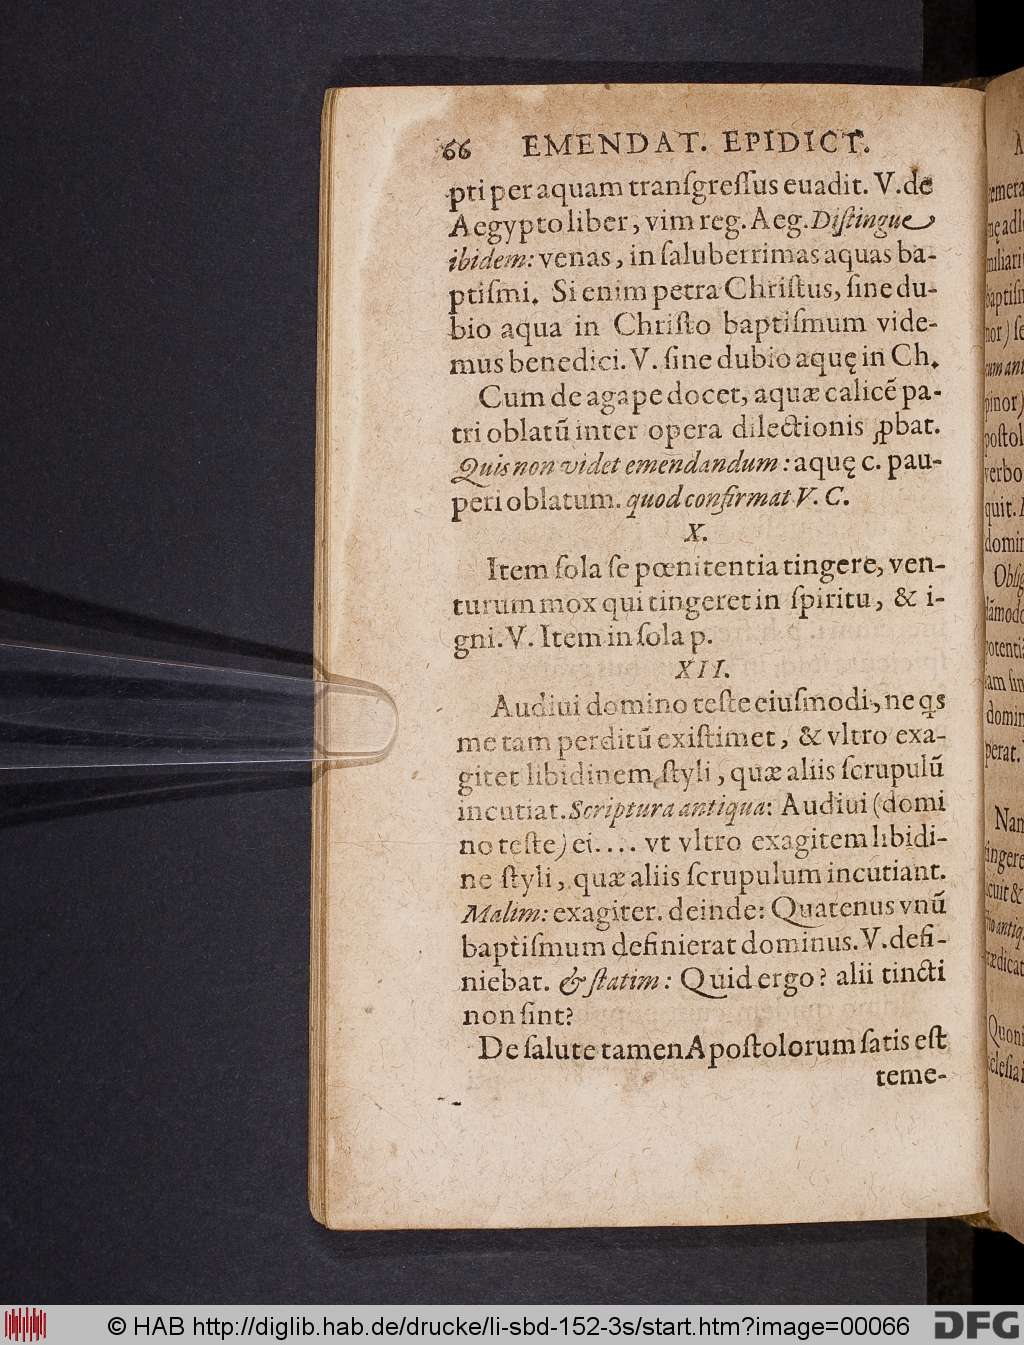 66 EMENDAT. EPIDICT.
pti per aquam tranſgreſſus euadit. V. de
Aegypto liber, vim reg. Aeg. Diſtingue
ibidem: venas, in ſaluberrimas aquas ba-
ptiſmi. Si enim petra Chriſtus, ſine du-
bio aqua in Chriſto baptiſmum vide-
mus benedici. V. ſine dubio aquę in Ch.
Cum de agape docet, aquæ calicẽ pa-
tri oblatũ inter opera dilectionis ꝓbat.
Quis non videt emendandum: aquę c. pau-
peri oblatum. quod confirmat V. C.
X.
Item ſola ſe pœnitentia tingere, ven-
turum mox qui tingeret in ſpiritu, & i-
gni. V. Item in ſola p.
XII.
Audiui domino teſte eiuſmodi, ne qs
me tam perditũ exiſtimet, & vltro exa-
gitet libidinem ſtyli, quæ aliis ſcrupulũ
incutiat. Scriptura antiqua: Audiui (domi
no teſte) ei.... vt vltro exagitem libidi-
ne ſtyli, quæ aliis ſcrupulum incutiant.
Malim: exagiter. deinde: Quatenus vnũ
baptiſmum definierat dominus. V. defi-
niebat. & ſtatim: Quid ergo? alii tincti
non ſint?
De ſalute tamen Apoſtolorum ſatis eſt
teme-
© HAB http://diglib.hab.de/drucke/li-sbd-152-3s/start.htm?image=00066
DFG